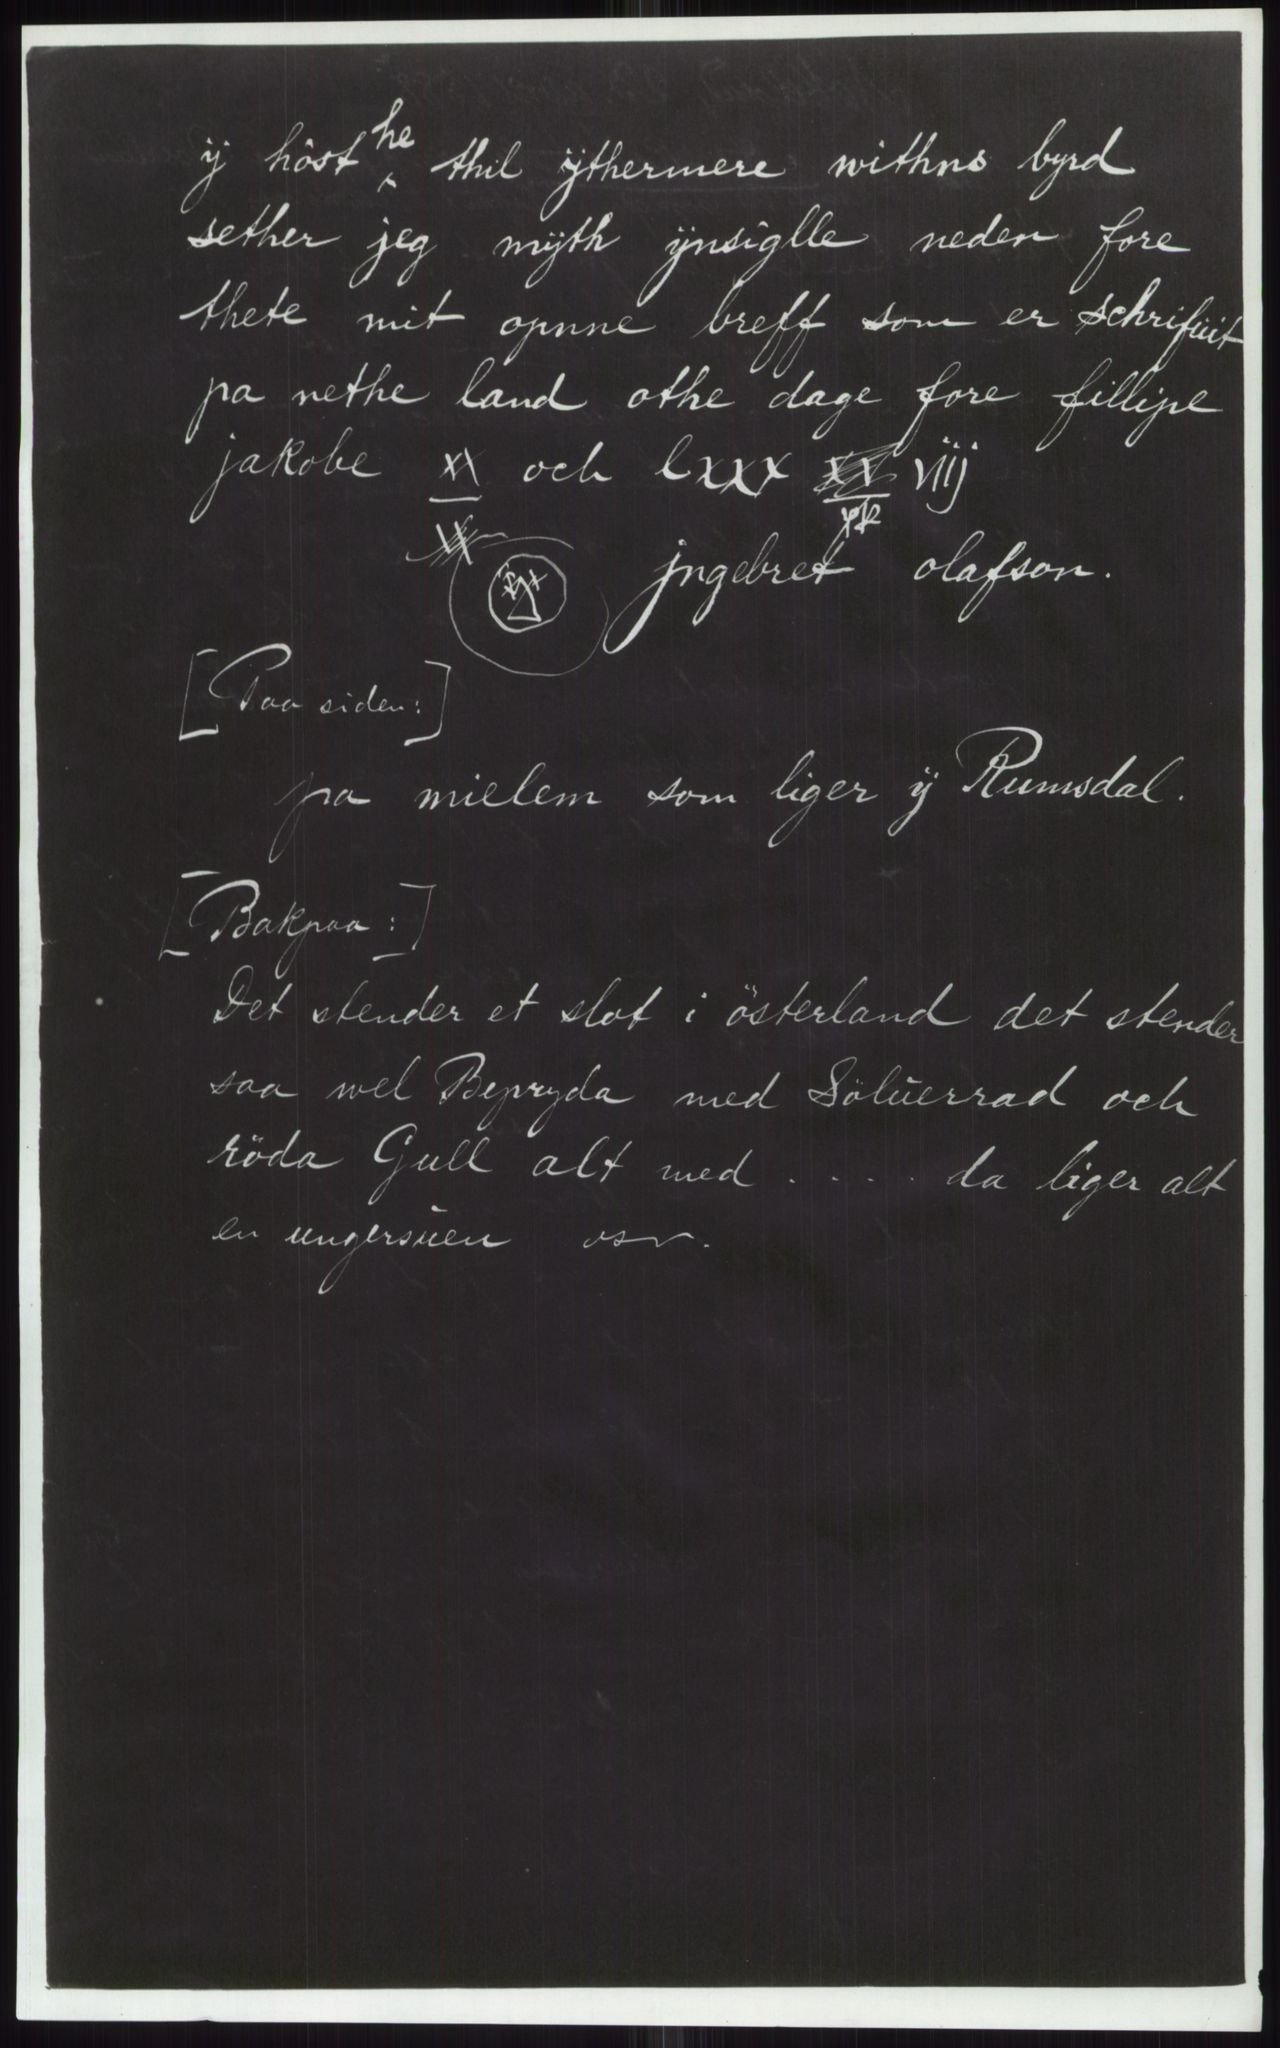 ÿ höst he thil ÿthermere withns byrd
sether jeg mÿth ÿnsiglle neden fore
thete mit opnne breff som er schrifüit
pa nethe land othe dage fore fillipe
jakobe XV och lxxx viij
jngebret olafson.
[Paa siden:]
pa mielem som liger ÿ Rumsdal.
[Bakpaa:]
Det stender et slot i österland det stender
saa wel Bepryda med Sölüerrad och
röda Gull alt med . . . . da liger alt
en ungersüen osv.